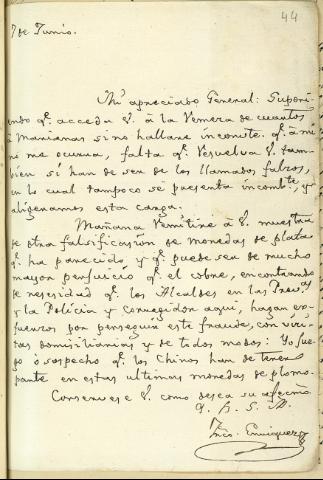 44
7 de Junio.
Mi apreciado General: Suponi-
endo qe. acceda V. à la remesa de cuartos
à Marianas si no hallare inconvte. qe. à mi
no me ocurra, falta qe. resuelva V. tam-
bien si han de ser de los llamados falsos,
en lo cual tampoco se presenta incombte. y
aligeramos esta carga.
Mañana remitire à V. muestra
de otra falsificacion de monedas de plata
qe. ha parecido, y qe. puede ser de mucho
mayor perjuicio qe. el cobre, encontrando
de necesidad qe. los Alcaldes en las Provs.
y la Policia y corregidor aqui, hagan es-
fuerzos por perseguir este fraude, con visi-
tas domiciliarias y de todos modos: Yo juz-
go ò sospecho qe. los Chinos han de tener
parte en estas ultimas monedas de plomo.
Conservese V. como desea su afecmo.
Q. B. S. M.
Fnco. Enriquez